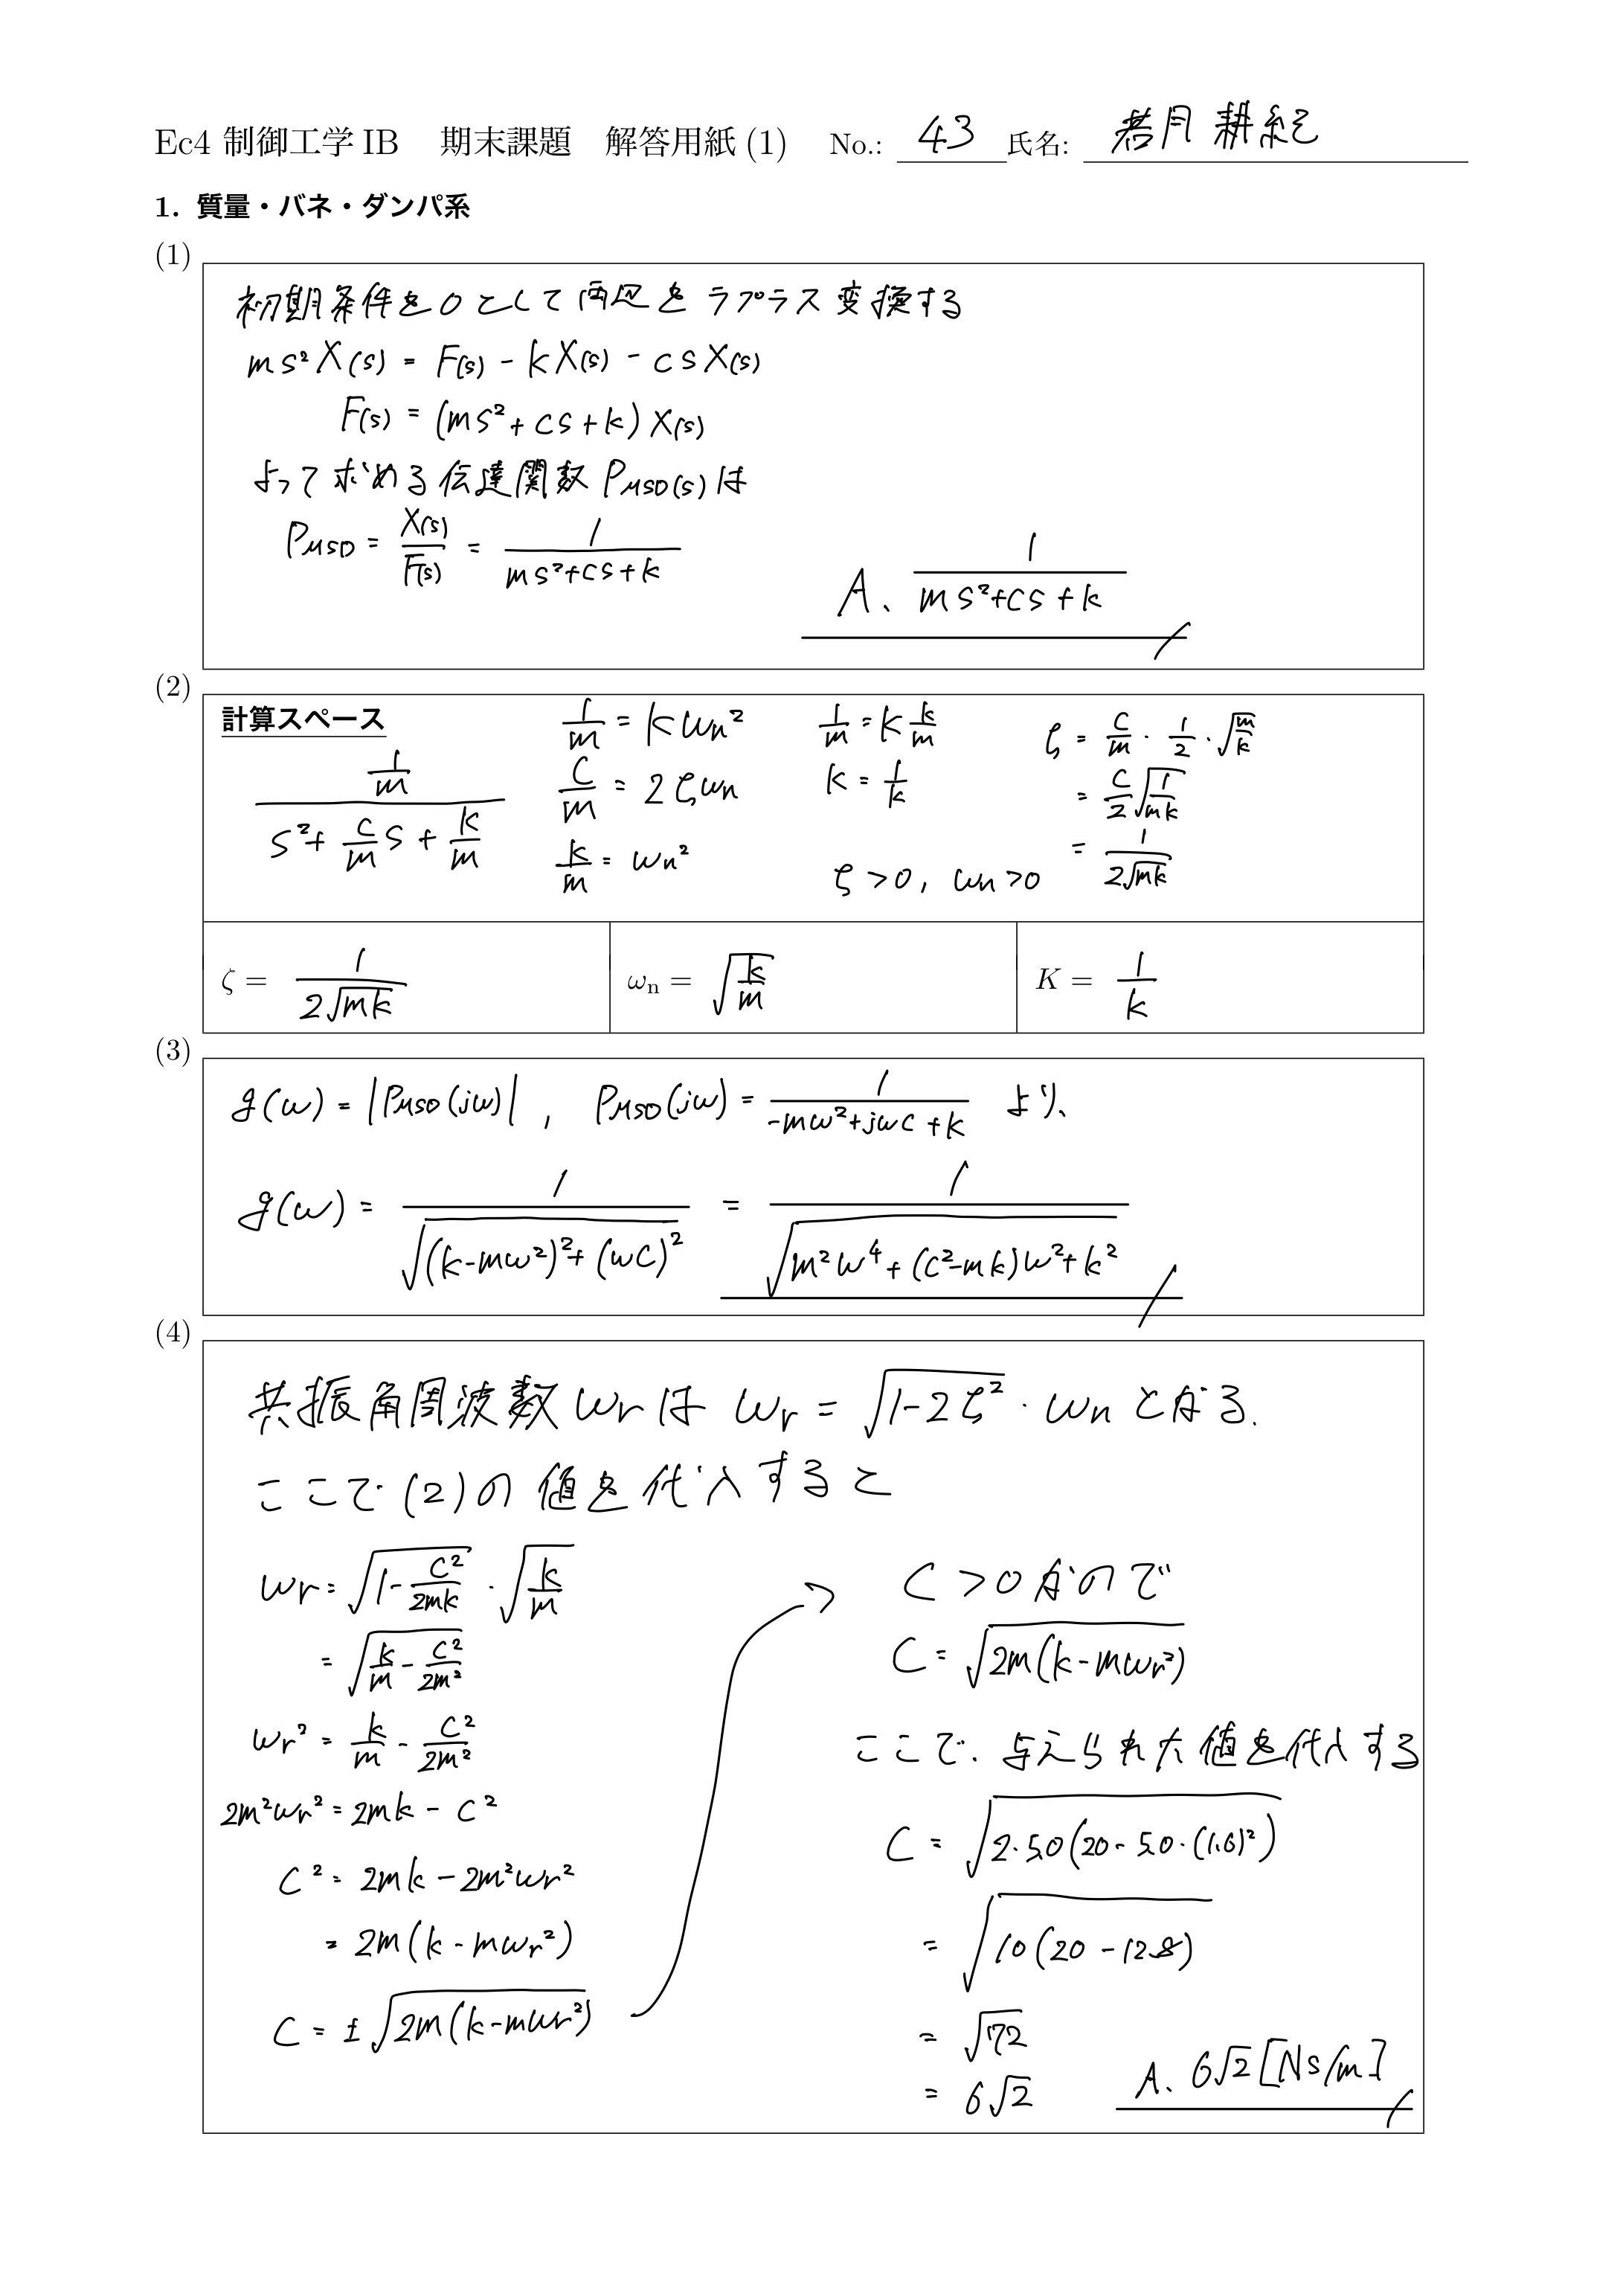 Ec4 制御工学 IB 期末課題 解答用紙 (1) No.: 43 氏名: 若月 耕紀
1. 質量・バネ・ダンパ系
(1)
初期条件を0として両辺をラプラス変換する
ms²X(s) = F(s) - kX(s) - csX(s)
F(s) = (ms²+cs+k)X(s)
よって求める伝達関数 P_MSD(s)は
P_MSD = X(s)/F(s) = 1/(ms²+cs+k)
A、 1/(ms²+cs+k)
(2)
計算スペース
(1/m)/(s²+(c/m)s+k/m)
1/m = Kωn²
c/m = 2ζωn
k/m = ωn²
1/m = K k/m
K = 1/k
ζ>0, ωn>0
ζ = c/m · 1/2 · √(m/k)
= c/2 √(1/mk)
= 1/(2√mk)
ζ = 1/(2√mk)
ωn = √(k/m)
K = 1/k
(3)
g(ω) = |P_MSD(jω)| , P_MSD(jω) = 1/(-mω²+jωc+k) より、
g(ω) = 1/√((k-mω²)²+(ωc)²) = 1/√(m²ω⁴+(c²-mk)ω²+k²)
(4)
共振角周波数ωrは ωr = √(1-2ζ²) · ωn となる.
ここで(2)の値を代入すると
ωr = √(1-c²/2mk) · √(k/m)
= √(k/m - c²/2m²)
ωr² = k/m - c²/2m²
2m²ωr² = 2mk - c²
c² = 2mk - 2m²ωr²
= 2m(k - mωr²)
c = ±√(2m(k-mωr²))
c > 0 なので
c = √(2m(k-mωr²))
ここで、与えられた値を代入する
c = √(2·5.0(20-5.0·(1.6)²))
= √(10(20-12.8))
= √72
= 6√2
A、6√2 [Ns/m]